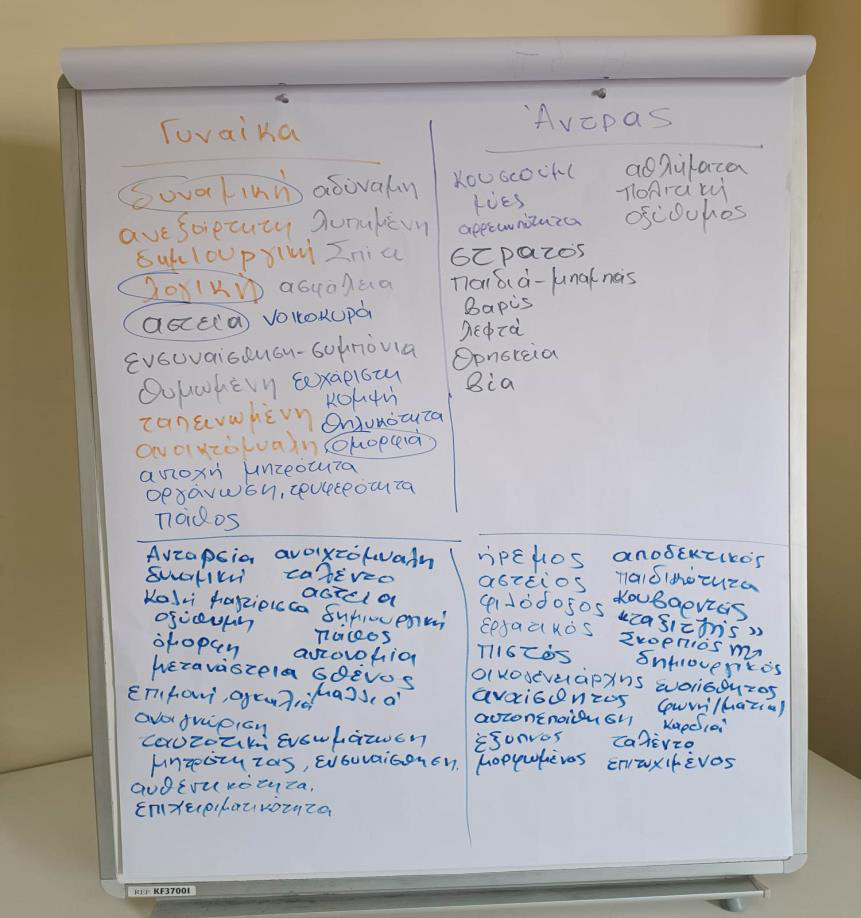 Γυναίκα
δυναμική αδύναμη
ανεξάρτητη λυπημένη
δημιουργική Σπίτι
λογική ασφάλεια
αστεία νοικοκυρά
ενσυναίσθηση-συμπόνια
θυμωμένη ευχάριστη
κομψή
ταπεινωμένη θηλυκότητα
ανοικτόμυαλη ομορφιά
αντοχή μητρότητα
οργάνωση, τρυφερότητα
πάθος
Άντρας
κουστούμι αθλήματα
μύες πολιτική
αρρενωπότητα οξύθυμος
στρατός
παιδιά-μπαμπάς
βαρύς
λεφτά
θρησκεία
βία
Ανταρσία ανοιχτόμυαλη
δυναμική ταλέντο
καλή μαγείρισσα αστεία
οξύθυμη δημιουργική
όμορφη πάθος
μετανάστρια αυτονομία
σθένος
επιμονή, αγκαλιά μαλλιά
αναγνώριση
ταυτοτική ενσωμάτωση
μητρότητας, ενσυναίσθηση,
αυθεντικότητα,
επιχειριματικότητα
ήρεμος αποδεκτικός
αστείος παιδικότητα
φιλόδοξος κουβαρντάς
εργατικός «ταξιτζής»
πιστός Σκορπιός ♏
δημιουργικός
οικογενειάρχης ευαίσθητος
αναίσθητος φωνή/(μάτια)
αυτοπεποίθηση καρδιά
έξυπνος ταλέντο
μορφωμένος επιτυχιμένος
REF. KF37001